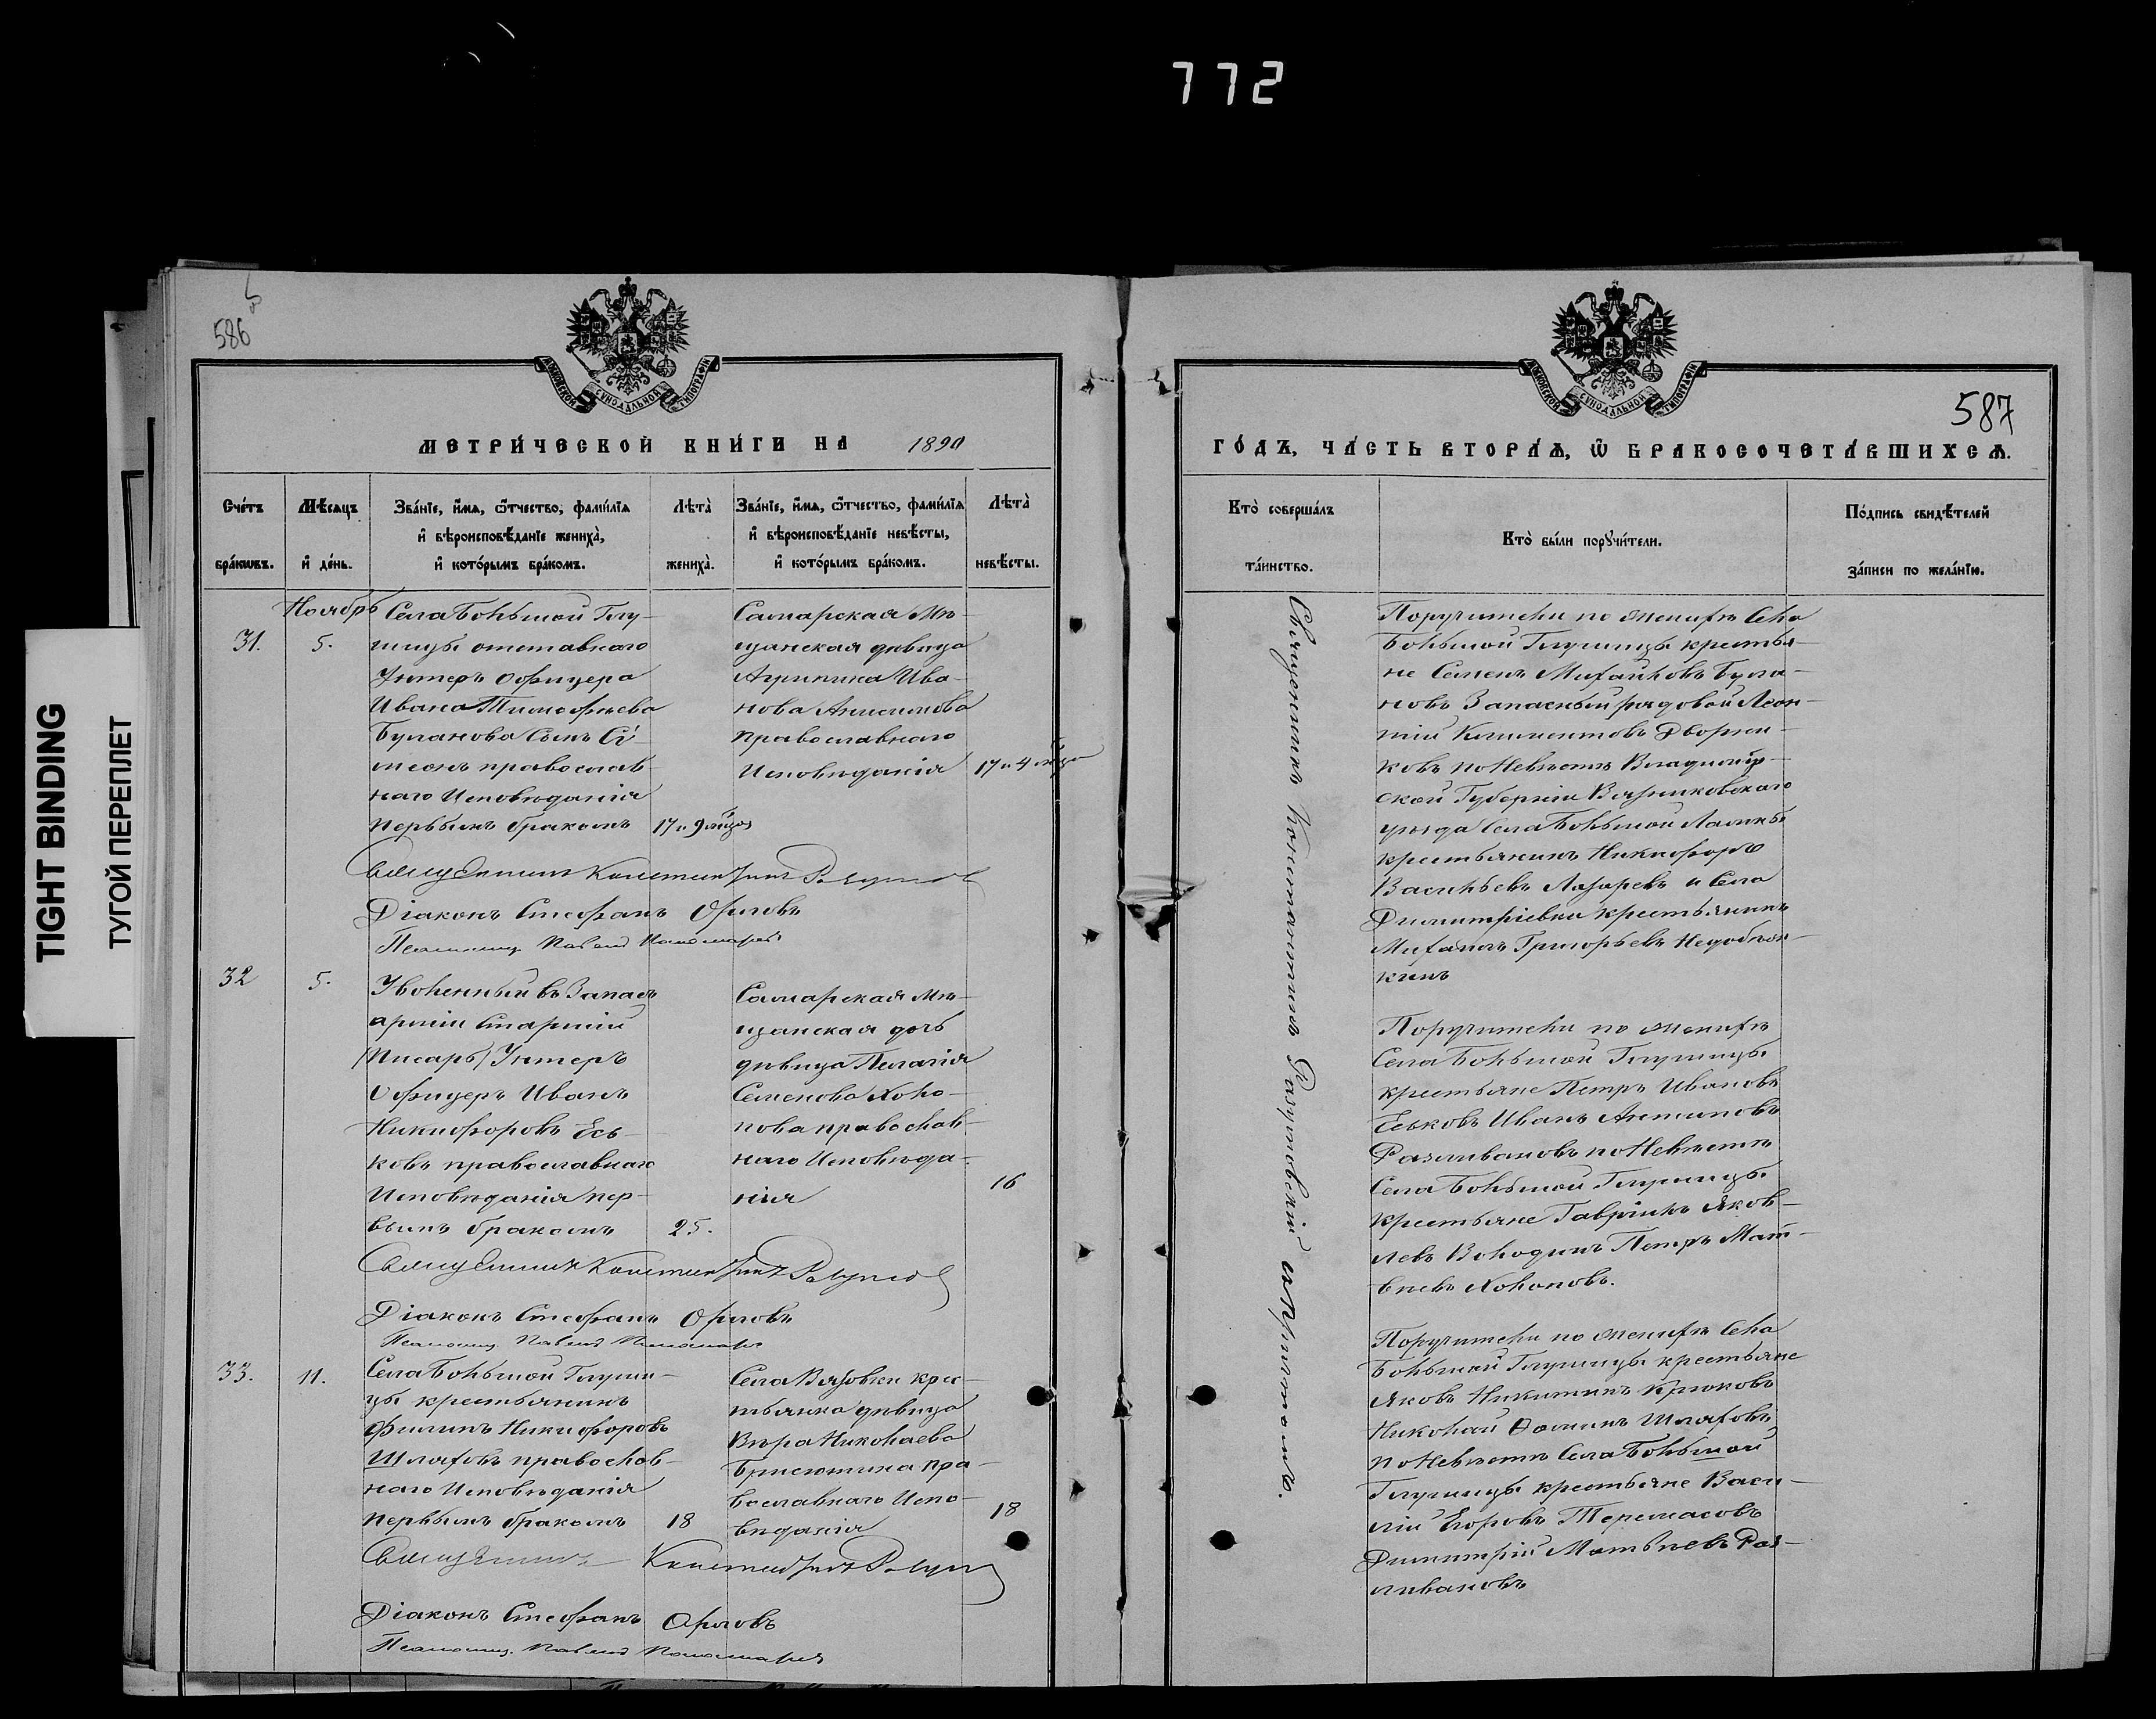 772
TIGHT BINDING
ТУГОЙ ПЕРЕПЛЕТ
586
МОСКОВСКОЙ СУНОДАЛЬНОЙ ТИПОГРАФІИ
МЕТРИ́ЧЕСКОЙ КНИ́ГИ НА 1890
Сче́тъ бра́кωвъ.
Мѣ́сяцъ и҆ де́нь.
Зва́нїе, и҆́мѧ, ѻ҆́тчество, фами́лїѧ
и҆ вѣроисповѣ́данїе жениха̀,
и҆ кото́рымъ бра́комъ.
Лѣта̀ жениха̀.
Зва́нїе, и҆́мѧ, ѻ҆́тчество, фами́лїѧ
и҆ вѣроисповѣ́данїе невѣ́сты,
и҆ кото́рымъ бра́комъ.
Лѣта̀ невѣ́сты.
Ноябрь
31.
5.
Села Большой Глу-
шицы отставнаго
Унтеръ Офицера
Ивана Тимофѣева
Буланова Сынъ Си-
меонъ православ-
наго Исповѣданія
первымъ бракомъ
17 и 9 м̃цовъ
Самарская Мѣ-
щанская дѣвица
Агрипина Ива-
нова Анисимова
православнаго
Исповѣданія
17 и 4 м̃ца
Священникъ Константинъ Разумов
Діаконъ Стефанъ Орловъ
Псаломщ. Павелъ Пономаревъ
32
5.
Уволенный въ Запасъ
арміи Старшій
(Писарь) Унтеръ
Офицеръ Иванъ
Никифоровъ Есь-
ковъ православнаго
Исповѣданія пер-
вымъ бракомъ
25.
Самарская мѣ-
щанская дочь
дѣвица Пелагія
Семенова Холо-
пова православ-
наго Исповѣда-
нія
16
Священникъ Константинъ Разумов
Діаконъ Стефанъ Орловъ
Псаломщ. Павелъ Пономарев
33.
11.
Села Большой Глуши-
цы крестьянинъ
Филипъ Никифоровъ
Шляховъ православ-
наго Исповѣданія
первымъ бракомъ
18
Села Вязовки крес-
тьянка дѣвица
Вѣра Николаева
Брисюткина пра-
вославнаго Испо-
вѣданія
18
Священникъ Константинъ Разум
Діаконъ Стефанъ Орловъ
Псаломщ. Павелъ Пономарев
МОСКОВСКОЙ СУНОДАЛЬНОЙ ТИПОГРАФІИ
587
ГО́ДЪ, ЧА́СТЬ ВТОРА́Ѧ, Ѽ БРАКОСОЧЕТА́ВШИХСѦ.
Кто̀ соверша́лъ
та́инство.
Кто̀ бы́ли порꙋчи́тели.
По́дпись свидѣ́телей
за́писи по жела́нїю.
Священникъ Константинъ Разумовскій съ причтомъ.
Поручители по женихѣ Села
Большой Глушицы крестья-
не Семенъ Михайловъ Була-
новъ Запасный рядовой Леон-
тій Климентовъ Дворни-
ковъ по Невѣстѣ Владимір-
ской Губерніи Вязниковскаго
уѣзда Села Большой Ламны
крестьянинъ Никифоръ
Васильевъ Лазаревъ и Села
Димитріевки крестьянинъ
Михаилъ Григорьевъ
кинъ
Поручители по женихѣ
Села Большой Глушицы
крестьяне Петръ Ивановъ
Еськовъ Иванъ Антиповъ
Разливановъ по Невѣстѣ
Села Большой Глушицы
крестьяне Гавріилъ Яков-
левъ Володинъ Петръ Мат-
вѣевъ Холоповъ.
Поручители по женихѣ Села
Большой Глушицы крестьяне
Яковъ Никитинъ Крюковъ
Николай Ѳоминъ Шляховъ
по Невѣстѣ Села Большой
Глушицы крестьяне Васи-
лій Егоровъ Термасовъ
Димитрій Матвѣевъ Раз-
ливановъ